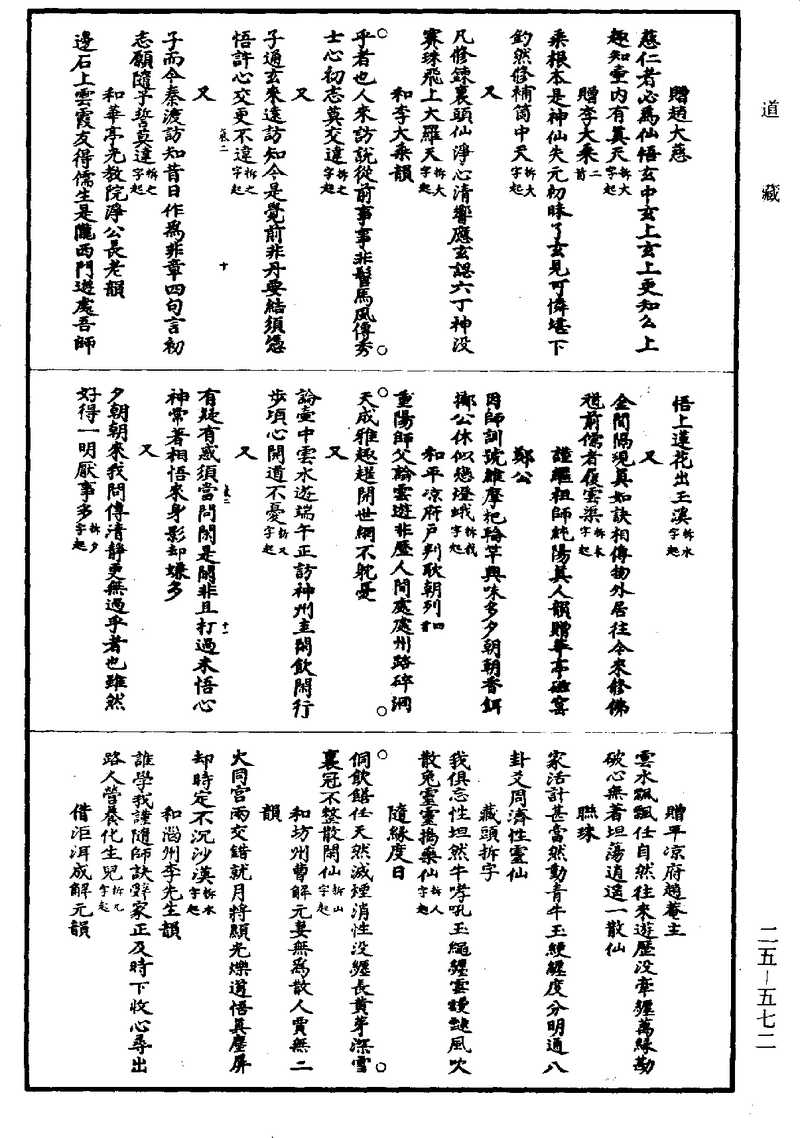 道藏
贈趙大慈
慈仁者必為仙悟玄中玄上玄上更知么上
趣知壶内有真天拆大字起
贈李大乘二首
乘根本是神仙失元初昧了玄見可憐堪下
釣然修補箇中天拆大字起
又
凡修鍊裏頭仙淨心清響應玄認六丁神没
賽珠飛上大羅天拆大字起
和李大乘韻
乎者也人來訪說從前事事非髻馬風傳秀
士心初志莫交違拆之字起
又
子通玄來遠訪知今是覺前非丹要結須憑
悟許心交更不違拆之字起
卷二 十
又
子而今秦渡訪知昔日作為非章四句言初
志願隨予誓莫違拆之字起
和華亭光教院淨公長老韻
邊石上雲霞友得儒生是隴西門遊處吾師
悟上蓮花出玉溪拆水字起
又
金間隔現真如訣相傳物外居往今來修佛
道前儒者復雲渠拆木字起
謹繼祖師純陽真人韻贈華亭
鄭公
因師訓號維摩把輪竿興味多夕朝朝香餌
擲公休似戀燈蛾拆我字起
和平凉府戶判耿朝列四首
重陽師父論雲遊非歷人間處處州路碎洞
天成雅趣趕開世網不躭憂
又
論壶中雲水遊端午正訪神州主閑飲閑行
步項心開道不憂拆又字起
又
有疑有惑須當問閑是閑非且打過來悟心
卷二 十一
神常著相悟來身影却嫌多
又
夕朝朝來我問傳清靜更無過乎者也雖然
好得一明厭事多拆夕字起
贈平凉府趙菴主
雲水飄飄任自然往來遊歷没牽纏萬緣勘
破心無著坦蕩逍遥一散仙
聯珠
家活計甚當然動青牛玉綆纏度分明通八
卦爻周濟性靈仙
藏頭拆字
我俱忘性坦然牛哮吼玉繩纏雲靉靆風吹
散兔靈靈搗藥仙拆人字起
隨緣度日
侗飲饍任天然滅煙消性没纏長黄芽深雪
裏冠不整散閑仙拆山字起
和坊州曹解元妻無為散人賈無二
韻
大同宫兩交錯就月將顯光爍道悟真塵屏
却時定不沉沙漠拆水字起
和淄州李先生韻
誰學我謹隨師訣辭家正及時下收心尋出
路人營養化生兒拆九字起
借洰洱成解元韻
二五—五七二